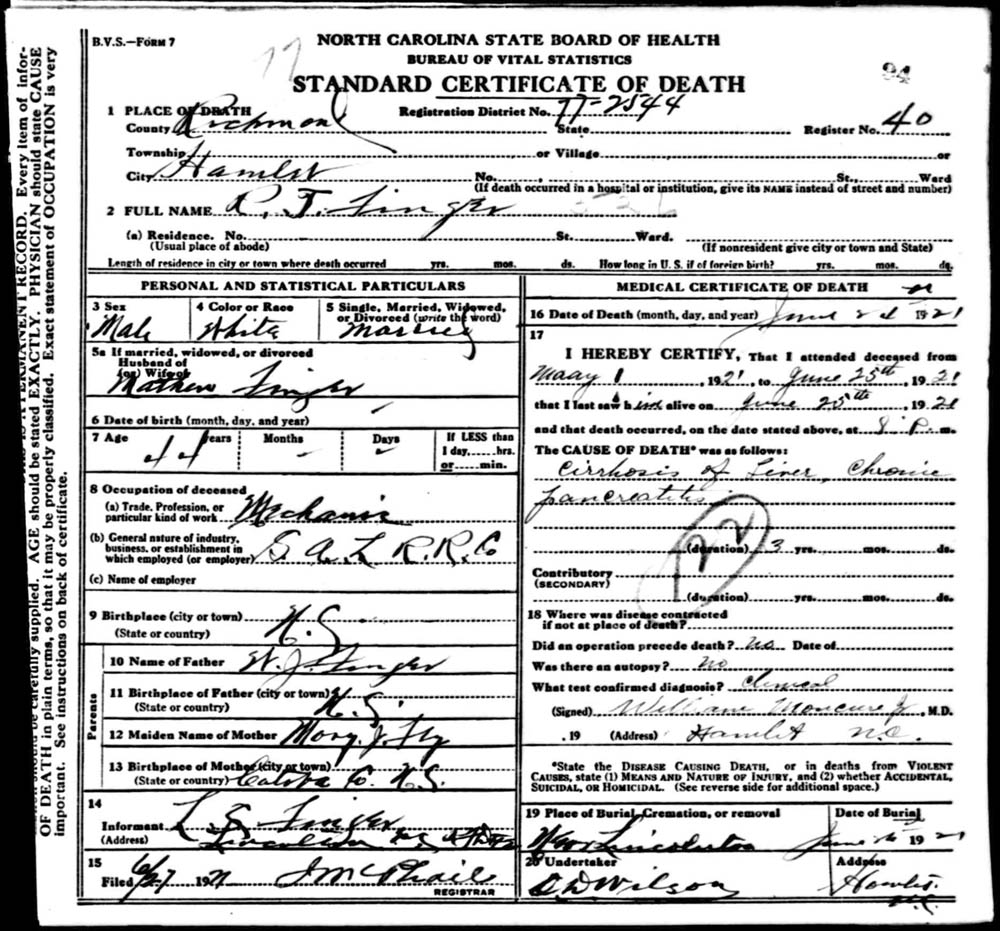 B.V.S.—FORM 7
NORTH CAROLINA STATE BOARD OF HEALTH
BUREAU OF VITAL STATISTICS
STANDARD CERTIFICATE OF DEATH
94
1 PLACE OF DEATH
Registration District No. 77-2544
County Richmond State Register No. 40
Township or Village or
City Hamlet No. St., Ward
(If death occurred in a hospital or institution, give its NAME instead of street and number)
2 FULL NAME R. J. Finger
(a) Residence. No. St. Ward.
(Usual place of abode) (If nonresident give city or town and State)
Length of residence in city or town where death occurred yrs. mos. ds. How long in U. S. if of foreign birth? yrs. mos. ds.
PERSONAL AND STATISTICAL PARTICULARS
3 Sex 4 Color or Race 5 Single, Married, Widowed, or Divorced (write the word)
Male White Married
5a If married, widowed, or divorced
Husband of
(or) Wife of
Finger
6 Date of birth (month, day, and year)
7 Age Years Months Days If LESS than
44 1 day,......hrs.
or......min.
8 Occupation of deceased
(a) Trade, Profession, or
particular kind of work Mechanic
(b) General nature of industry,
business, or establishment in
which employed (or employer) S A L R. R. Co
(c) Name of employer
9 Birthplace (city or town)
(State or country) N. C.
Parents
10 Name of Father W. J. Finger
11 Birthplace of Father (city or town)
(State or country) N. C.
12 Maiden Name of Mother Mary J. Fry
13 Birthplace of Mother (city or town)
(State or country) Catawba Co. N.C.
14
Informant Finger
(Address)
15
Filed 6/27 1921 J McPhail
REGISTRAR
MEDICAL CERTIFICATE OF DEATH
16 Date of Death (month, day, and year) June 1921
17
I HEREBY CERTIFY, That I attended deceased from
Maay 1, 1921, to June 25th, 1921
that I last saw him alive on June 25th, 1921
and that death occurred, on the date stated above, at 8 P. m.
The CAUSE OF DEATH* was as follows:
Cirrhosis of Liver, Chronic
pancreatitis
122
(duration) 3 yrs. mos. ds.
Contributory
(SECONDARY)
(duration) yrs. mos. ds.
18 Where was disease contracted
if not at place of death?
Did an operation precede death? No Date of
Was there an autopsy? No
What test confirmed diagnosis? Clinical
(Signed) William Moncure Jr, M.D.
, 19 (Address) Hamlet N.C.
*State the DISEASE CAUSING DEATH, or in deaths from VIOLENT
CAUSES, state (1) MEANS AND NATURE OF INJURY, and (2) whether ACCIDENTAL,
SUICIDAL, OR HOMICIDAL. (See reverse side for additional space.)
19 Place of Burial, Cremation, or removal Date of Burial
Lincolnton June 1921
20 Undertaker Address
Wilson Hamlet N.C.
RECORD. Every item of infor-
should be carefully supplied. AGE should be stated EXACTLY. PHYSICIAN should state CAUSE
OF DEATH in plain terms, so that it may be properly classified. Exact statement of OCCUPATION is very
important. See instructions on back of certificate.